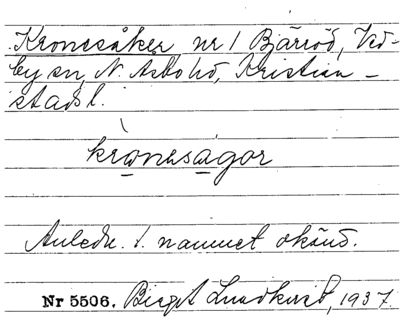 Kronesåker nr 1 Bjärröd, Ved-
by sn, N. Åsbo hd, Kristian-
stads l.
krọnesạgor
Anledn. t. namnet okänd.
Nr 5506. Birgit Lundkvist, 1937.